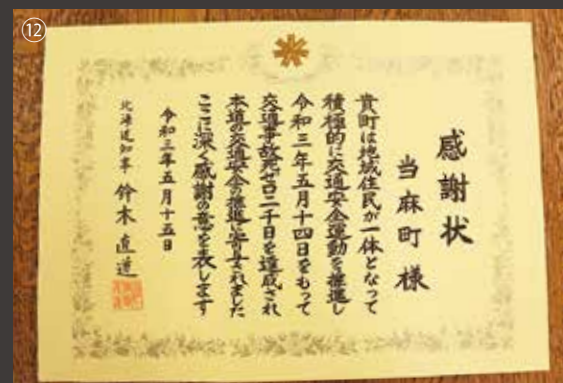 ⑫
感謝状
当麻町様
貴町は地域住民が一体となって
積極的に交通安全運動を推進し
令和三年五月十四日をもって
交通事故死ゼロ二千日を達成され
本道の交通安全の推進に寄与されました
ここに深く感謝の意を表します
令和三年五月十五日
北海道知事 鈴木直道